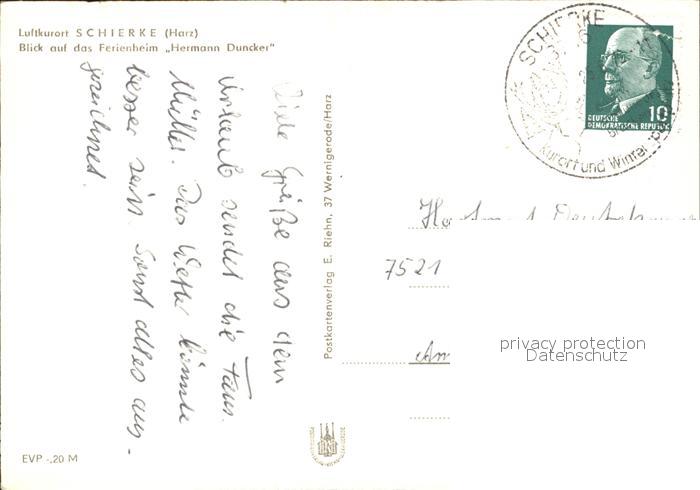 Luftkurort SCHIERKE (Harz)
Blick auf das Ferienheim „Hermann Duncker"
Viele Grüße aus dem
Urlaub sendet die Fam.
Müller. Das Wetter könnte
besser sein. Sonst alles aus-
gezeichnet.
EVP -,20 M
Postkartenverlag E. Riehn, 37 Wernigerode/Harz
SCHIERKE
Kurort und Winter
DEUTSCHE
DEMOKRATISCHE REPUBLIK
10
7521
Am
privacy protection
Datenschutz